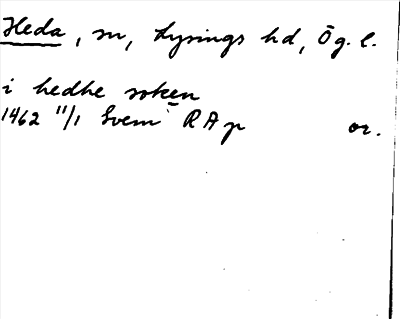 Heda, sn, Lysings hd, Ög. l.
i hedhe soken
1462 11/1 Svem RAp or.